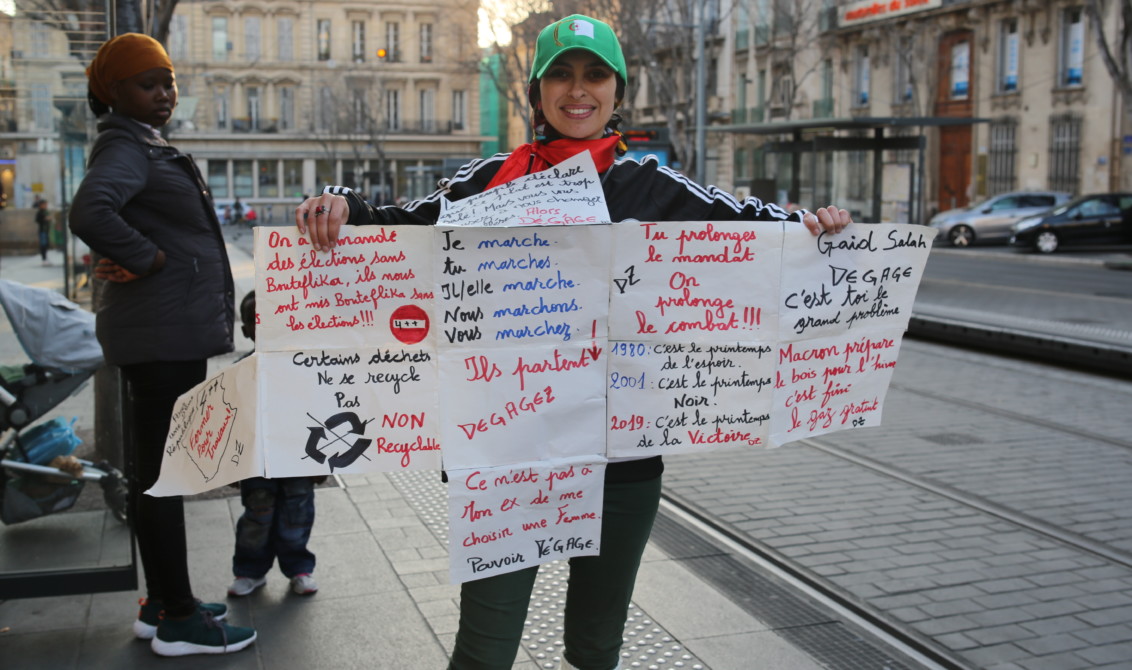 déclare
est trop
Mais vous vous
Alors
DÉGAGE
On a demandé
des élections sans
Bouteflika, ils nous
ont mis Bouteflika sans
les élections!!!
4++
Je marche.
tu marches.
IL/elle marche.
Nous marchons.
Vous marchez.
Ils partent
DEGAGEZ
Tu prolonges
le mandat
DZ
On
prolonge
le combat!!!
Gaid Salah
DEGAGE
C'est toi le
grand problème
Certains déchets
Ne se recycle
Pas
NON
Recyclable
1980: C'est le printemps
de l'espoir.
2001: C'est le printemps
Noir.
2019: C'est le printemps
de la Victoire DZ
Macron prépare
le bois pour l'hiver
c'est fini
le gaz gratuit
DZ
Fermer
Pour
Travaux!!
DZ
Ce n'est pas à
Mon ex de me
choisir une Femme.
Pouvoir DÉGAGE.